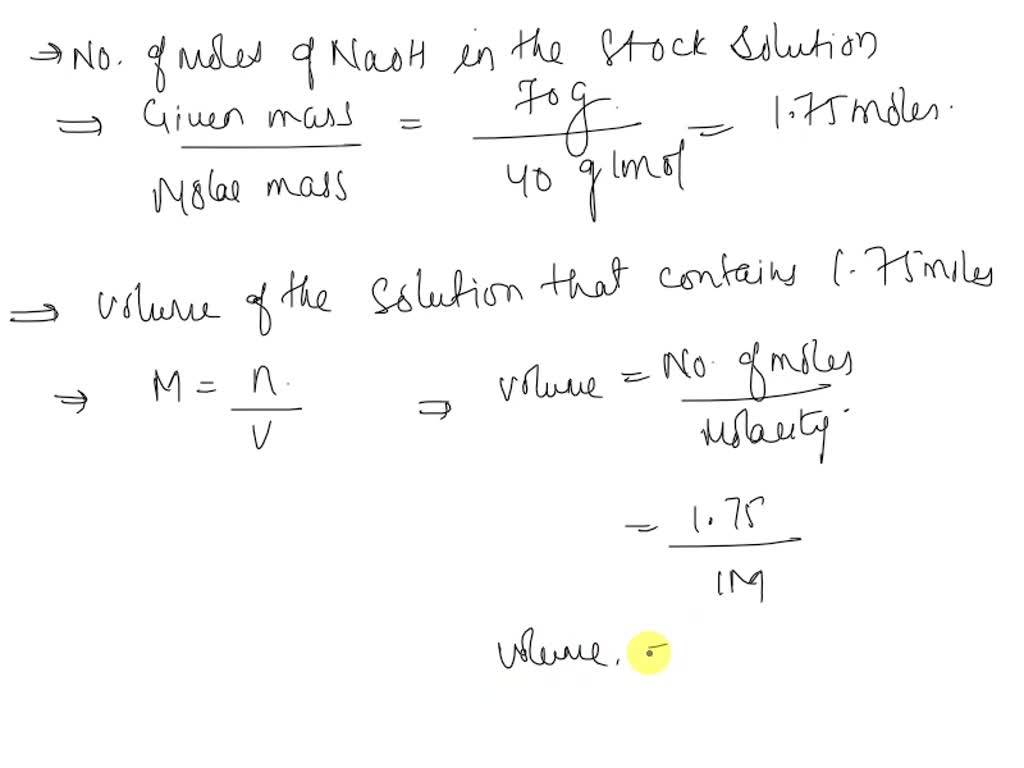 → No. of moles of NaOH in the Stock Solution
⇒ Given mass / Molar mass = 70g / 40 g/mol = 1.75 moles.
⇒ volume of the solution that contains 1.75 moles
⇒ M = n / V ⇒ volume = No. of moles / Molarity.
= 1.75 / 1M
volume. =